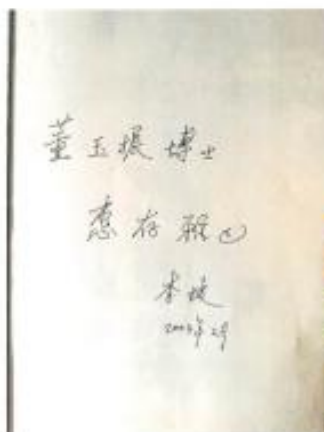 董玉振博士
惠存雅正
李
2002年2月